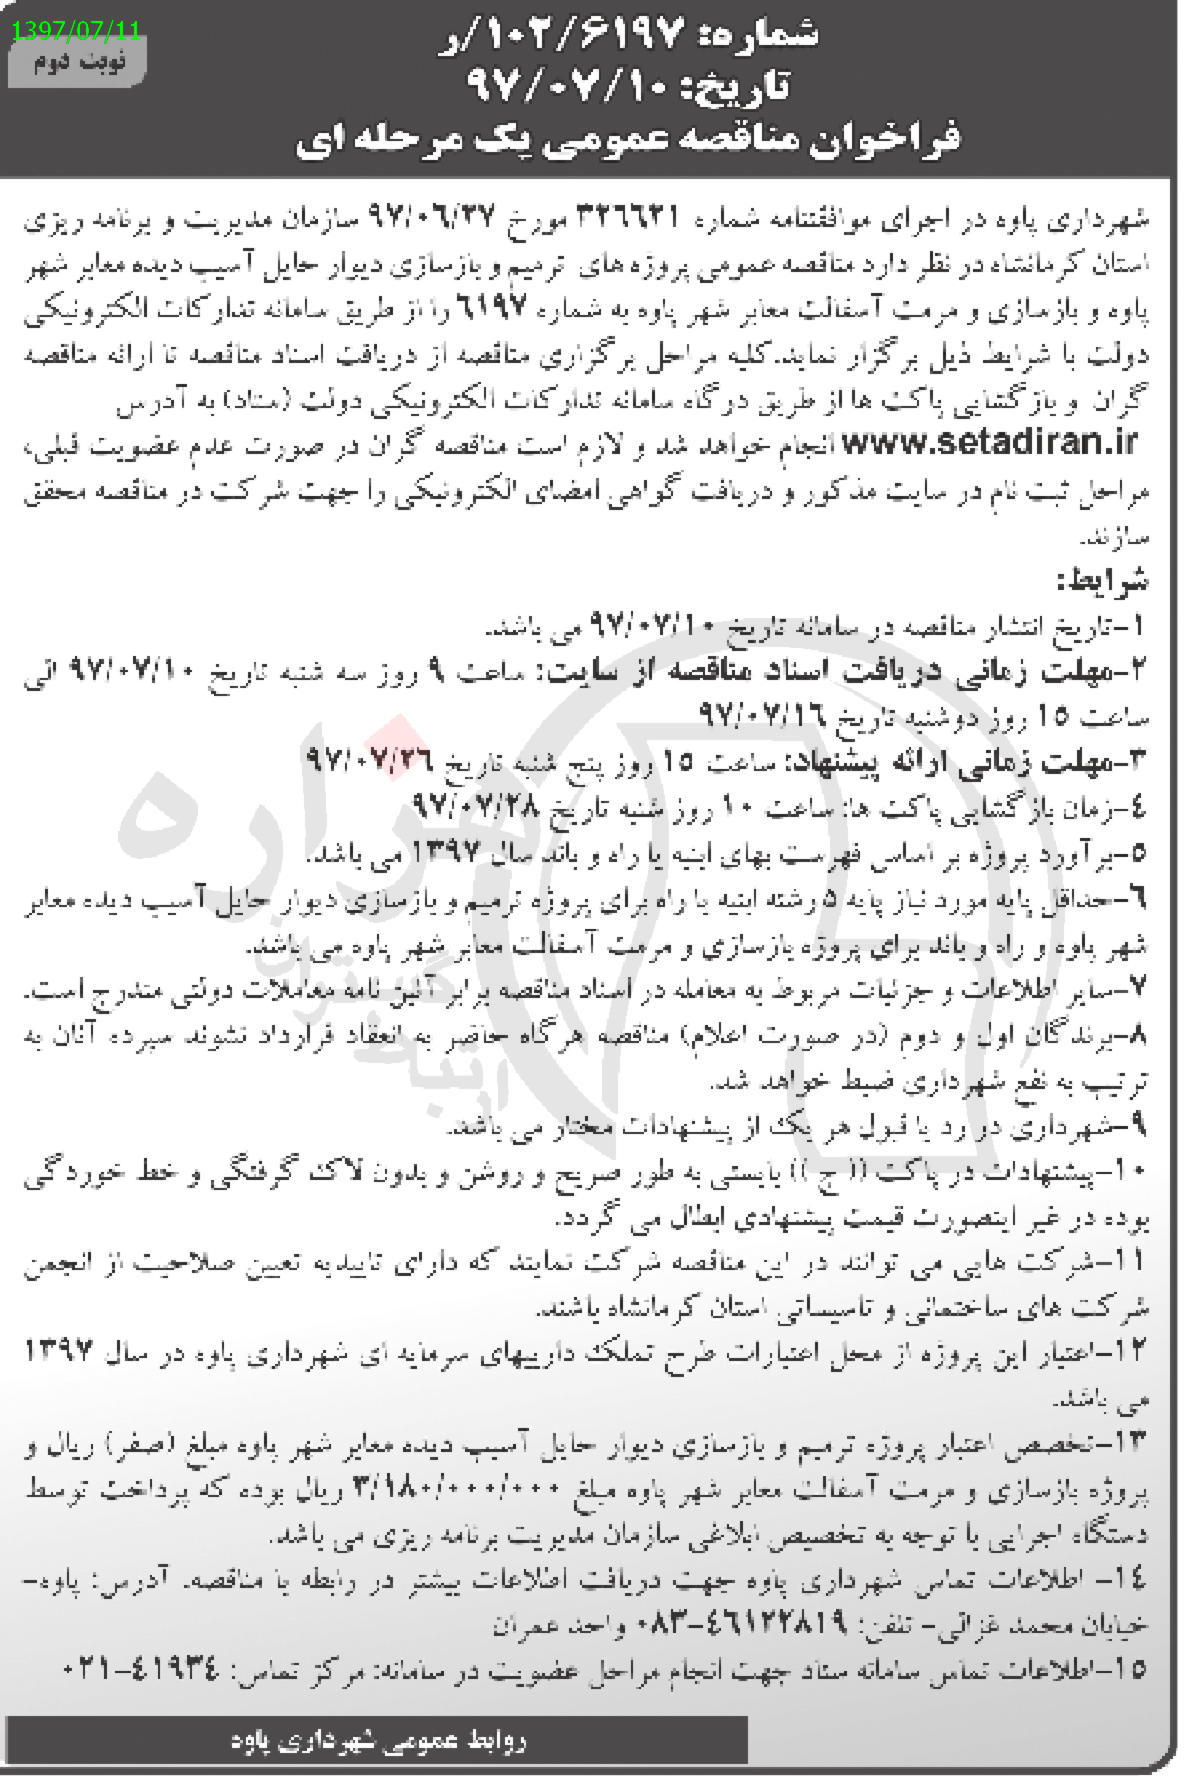 1397/07/11
نوبت دوم
شماره: ۱۰۲/۶۱۹۷/ر
تاریخ: ۹۷/۰۷/۱۰
فراخوان مناقصه عمومی یک مرحله ای
شهرداری پاوه در اجرای موافقتنامه شماره ۳۲۶۶۲۱ مورخ ۹۷/۰۶/۲۷ سازمان مدیریت و برنامه ریزی
استان کرمانشاه در نظر دارد مناقصه عمومی پروژه های ترمیم و بازسازی دیوار حایل آسیب دیده معابر شهر
پاوه و بازسازی و مرمت آسفالت معابر شهر پاوه به شماره ۶۱۹۷ را از طریق سامانه تدارکات الکترونیکی
دولت با شرایط ذیل برگزار نماید.کلیه مراحل برگزاری مناقصه از دریافت اسناد مناقصه تا ارائه مناقصه
گران و بازگشایی پاکت ها از طریق درگاه سامانه تدارکات الکترونیکی دولت (ستاد) به آدرس
www.setadiran.ir انجام خواهد شد و لازم است مناقصه گران در صورت عدم عضویت قبلی،
مراحل ثبت نام در سایت مذکور و دریافت گواهی امضای الکترونیکی را جهت شرکت در مناقصه محقق
سازند.
شرایط:
۱-تاریخ انتشار مناقصه در سامانه تاریخ ۹۷/۰۷/۱۰ می باشد.
۲-مهلت زمانی دریافت اسناد مناقصه از سایت: ساعت ۹ روز سه شنبه تاریخ ۹۷/۰۷/۱۰ الی
ساعت ۱۵ روز دوشنبه تاریخ ۹۷/۰۷/۱۶
۳-مهلت زمانی ارائه پیشنهاد: ساعت ۱۵ روز پنج شنبه تاریخ ۹۷/۰۷/۲۶
۴-زمان بازگشایی پاکت ها: ساعت ۱۰ روز شنبه تاریخ ۹۷/۰۷/۲۸
۵-برآورد پروژه بر اساس فهرست بهای ابنیه یا راه و باند سال ۱۳۹۷ می باشد.
۶-حداقل پایه مورد نیاز پایه ۵ رشته ابنیه یا راه برای پروژه ترمیم و بازسازی دیوار حایل آسیب دیده معابر
شهر پاوه و راه و باند برای پروژه بازسازی و مرمت آسفالت معابر شهر پاوه می باشد.
۷-سایر اطلاعات و جزئیات مربوط به معامله در اسناد مناقصه برابر آئین نامه معاملات دولتی مندرج است.
۸-برندگان اول و دوم (در صورت اعلام) مناقصه هرگاه حاضر به انعقاد قرارداد نشوند سپرده آنان به
ترتیب به نفع شهرداری ضبط خواهد شد.
۹-شهرداری در رد یا قبول هر یک از پیشنهادات مختار می باشد.
۱۰-پیشنهادات در پاکت (( ج )) بایستی به طور صریح و روشن و بدون لاک گرفتگی و خط خوردگی
بوده در غیر اینصورت قیمت پیشنهادی ابطال می گردد.
۱۱-شرکت هایی می توانند در این مناقصه شرکت نمایند که دارای تاییدیه تعیین صلاحیت از انجمن
شرکت های ساختمانی و تاسیساتی استان کرمانشاه باشند.
۱۲-اعتبار این پروژه از محل اعتبارات طرح تملک داریبهای سرمایه ای شهرداری پاوه در سال ۱۳۹۷
می باشد.
۱۳-تخصص اعتبار پروژه ترمیم و بازسازی دیوار حایل آسیب دیده معابر شهر پاوه مبلغ (صفر) ریال و
پروژه بازسازی و مرمت آسفالت معابر شهر پاوه مبلغ ۳/۱۸۰/۰۰۰/۰۰۰ ریال بوده که پرداخت توسط
دستگاه اجرایی با توجه به تخصیص ابلاغی سازمان مدیریت برنامه ریزی می باشد.
۱۴- اطلاعات تماس شهرداری پاوه جهت دریافت اطلاعات بیشتر در رابطه با مناقصه. آدرس: پاوه-
خیابان محمد غزالی- تلفن: ۴۶۱۲۲۸۱۹-۰۸۳ واحد عمران
۱۵-اطلاعات تماس سامانه ستاد جهت انجام مراحل عضویت در سامانه: مرکز تماس: ۴۱۹۳۴-۰۲۱
روابط عمومی شهرداری پاوه